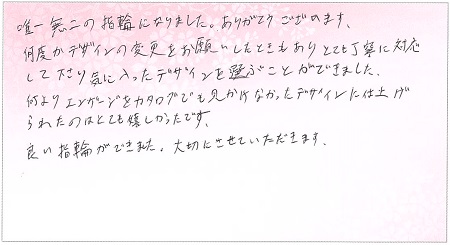 唯一無二の指輪になりました。ありがとうございます。
何度かデザインの変更をお願いしたときもありとても丁寧に対応
して下さり気に入ったデザインを選ぶことができました。
何よりエンゲージをカタログでも見かけなかったデザインに仕上げ
られたのはとても嬉しかったです。
良い指輪ができました。大切にさせていただきます。